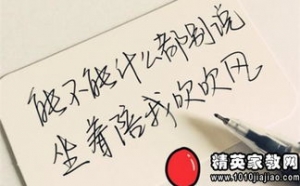 能不能什么都别说
坐着陪我吹吹风
精英家教网
www.1010jiajiao.com